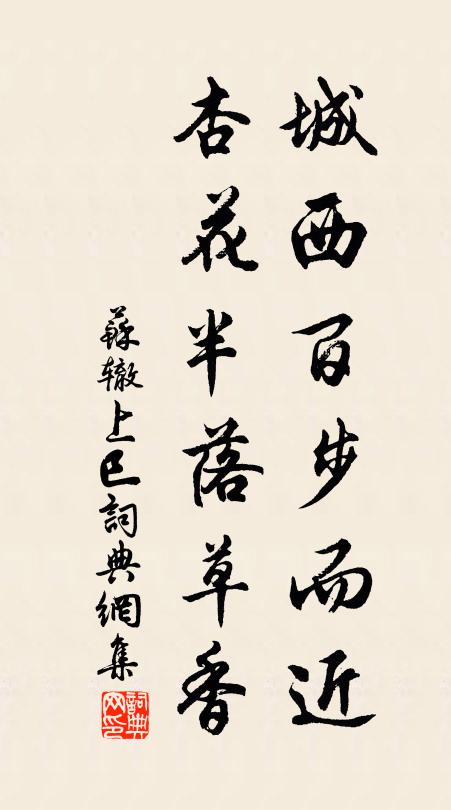 城西百步而近
杏花半落草香
蘇辙上巳詞典網集
詞典
网印